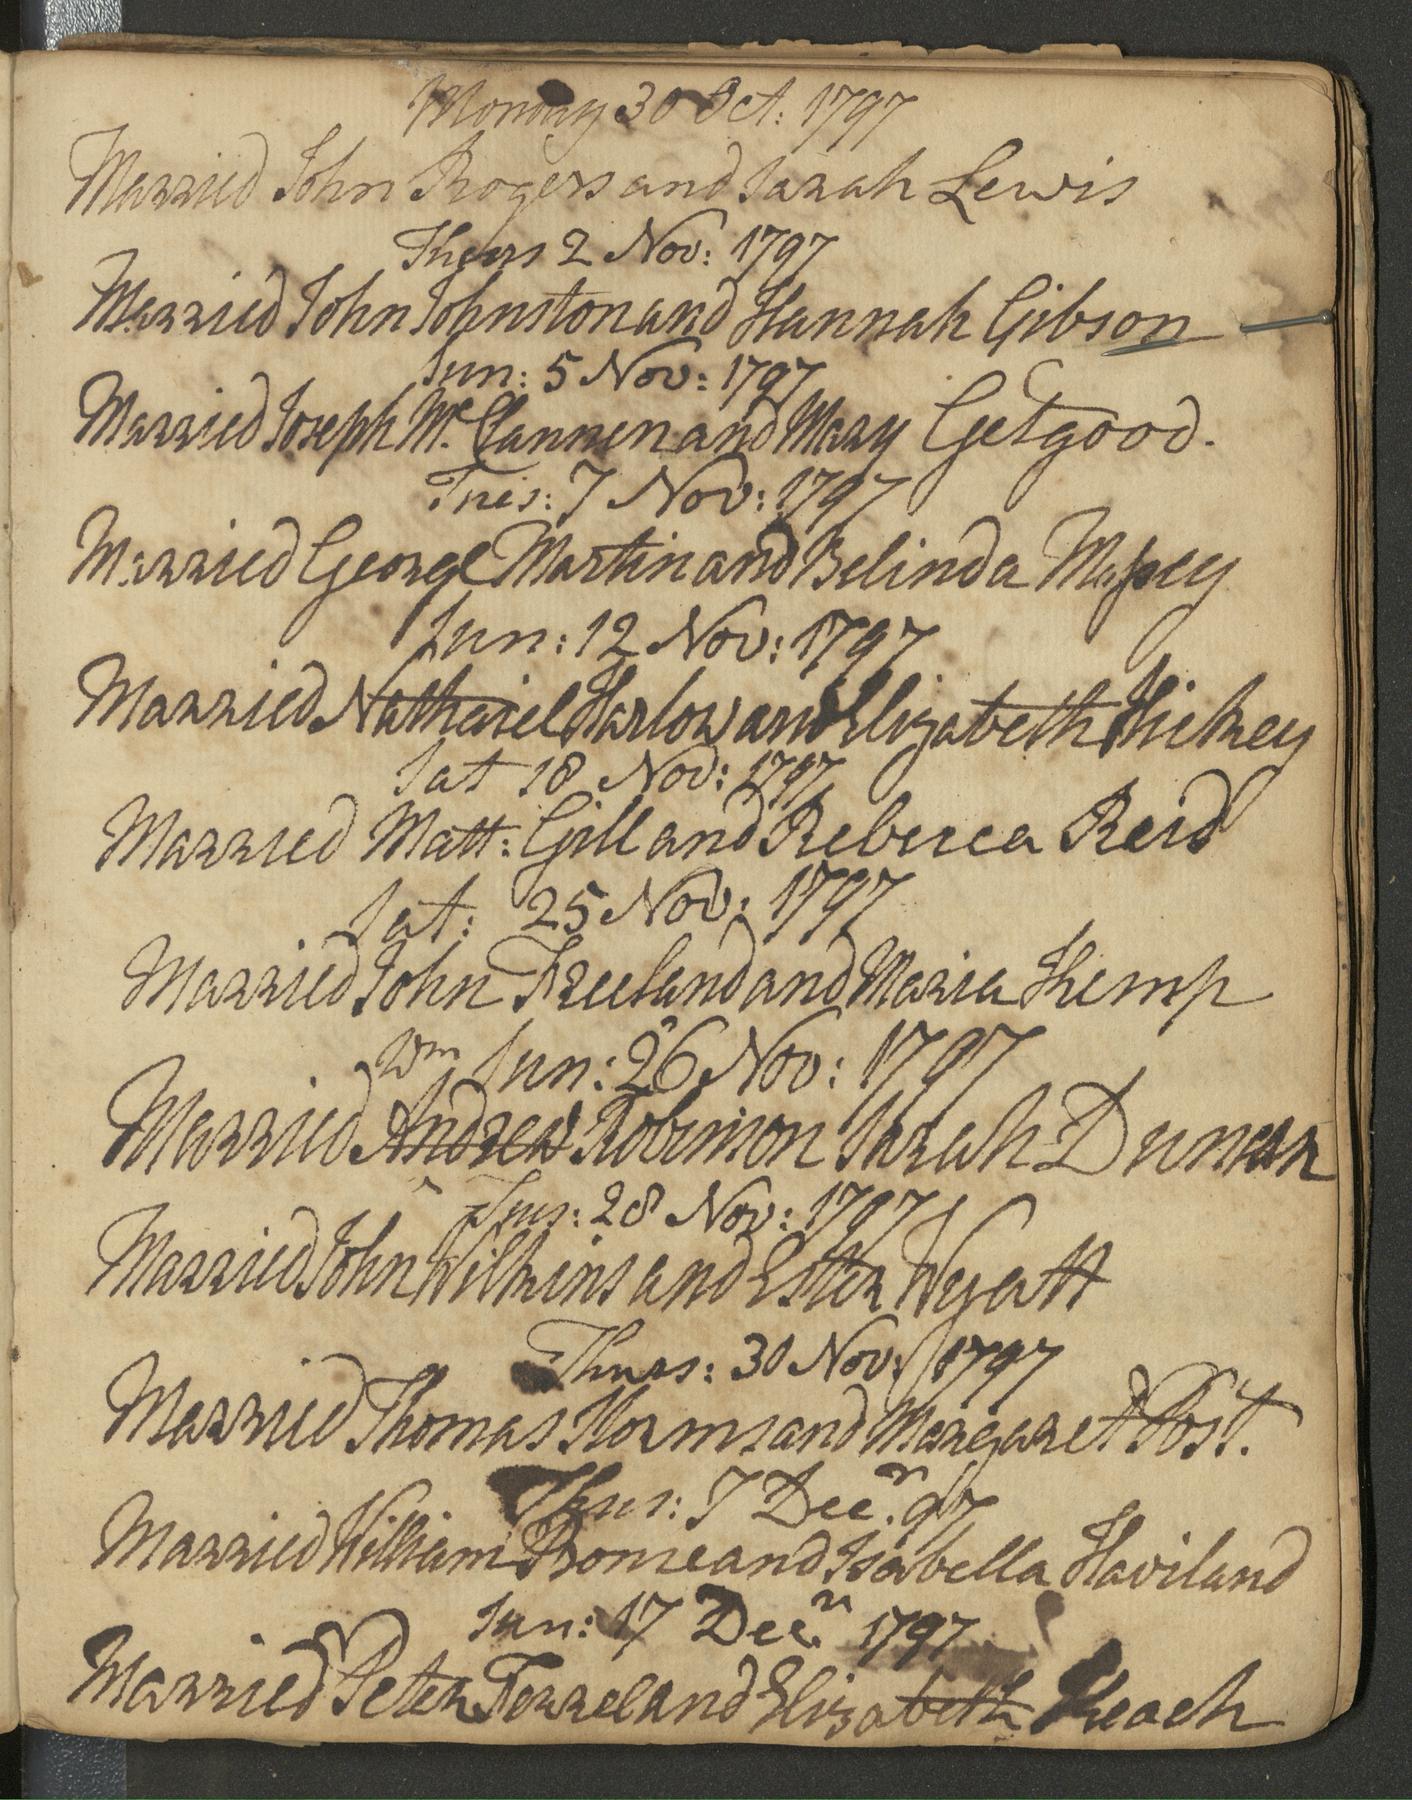 Monday 30 Oct: 1797
Married John Rogers and Sarah Lewis
Thurs 2 Nov: 1797
Married John Johnston and Hannah Gibson
Sun: 5 Nov: 1797
Married Joseph Mc. Cannen and Mary Getgood.
Tues: 7 Nov: 1797
Married George Martin and Belinda
Sun: 12 Nov: 1797
Married Nathaniel Harlow and Elizabeth Hickey
Sat 18 Nov: 1797
Married Matt: Gill and Rebecca Reid
Sat: 25 Nov: 1797
Married John Freeland and Maria Kemp
Wm Sun: 26 Nov: 1797
Married Andrew Robinson Sarah Duncan
Tues: 28 Nov: 1797
Married John Wilkins and Ester Wyatt
Thurs: 30 Nov: 1797
Married Thomas and Margaret Post.
Thurs: 7 Decr. 97
Married William and Isabella Haviland
Sun: 17 Decr. 1797
Married Peter Terrel and Elizabeth Keach